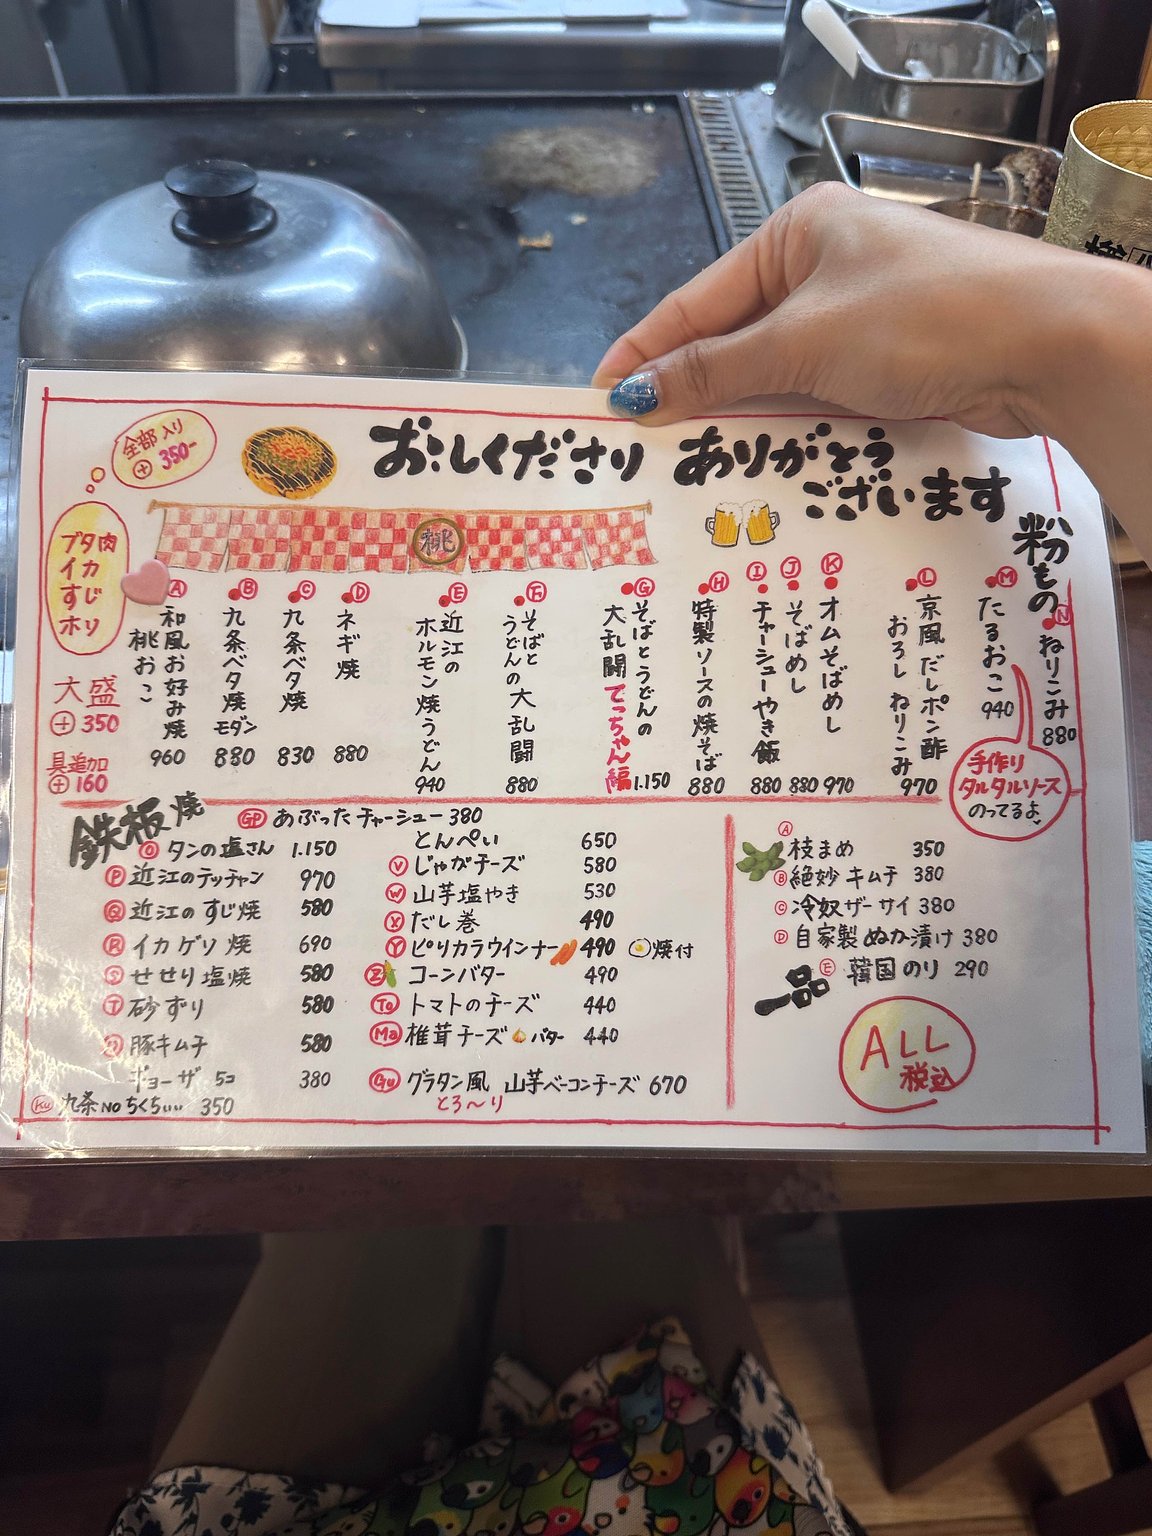 全部入り
⊕350-
ブタ肉
イカ
すじ
ホソ
大盛
⊕350
具追加
⊕160
おこしくださり ありがとう
ございます
桃
粉もの
Ⓐ
和風お好み焼
桃おこ
960
Ⓑ
九条ベタ焼
モダン
880
Ⓒ
九条ベタ焼
830
Ⓓ
ネギ焼
880
Ⓔ
近江の
ホルモン焼うどん
940
Ⓕ
そばと
うどんの大乱闘
880
Ⓖ
そばとうどんの
大乱闘 でっちゃん編
1.150
Ⓗ
特製ソースの焼そば
880
Ⓘ
チャーシューやき飯
880
Ⓙ
そばめし
880
Ⓚ
オムそばめし
970
Ⓛ
京風だしポン酢
おろし ねりこみ
970
Ⓜ
たるおこ
940
Ⓝ
ねりこみ
880
手作り
タルタルソース
のってるよ
鉄板焼
GP あぶったチャーシュー 380
Ⓞ タンの塩さん 1.150
Ⓟ 近江のテッチャン 970
Ⓠ 近江のすじ焼 580
Ⓡ イカゲソ焼 690
Ⓢ せせり塩焼 580
Ⓣ 砂ずり 580
豚キムチ 580
ギョーザ 5コ 380
Ku 九条NOちくちぃぃ 350
とんぺい 650
Ⓥ じゃがチーズ 580
Ⓦ 山芋塩やき 530
Ⓧ だし巻 490
Ⓨ ピリカラウインナー 490 焼付
Ⓩ コーンバター 490
To トマトのチーズ 440
Ma 椎茸チーズ バター 440
Gu グラタン風 山芋ベーコンチーズ 670
とろ〜り
Ⓐ 枝まめ 350
Ⓑ 絶妙キムチ 380
Ⓒ 冷奴ザーサイ 380
Ⓓ 自家製ぬか漬け 380
Ⓔ 韓国のり 290
一品
ALL
税込